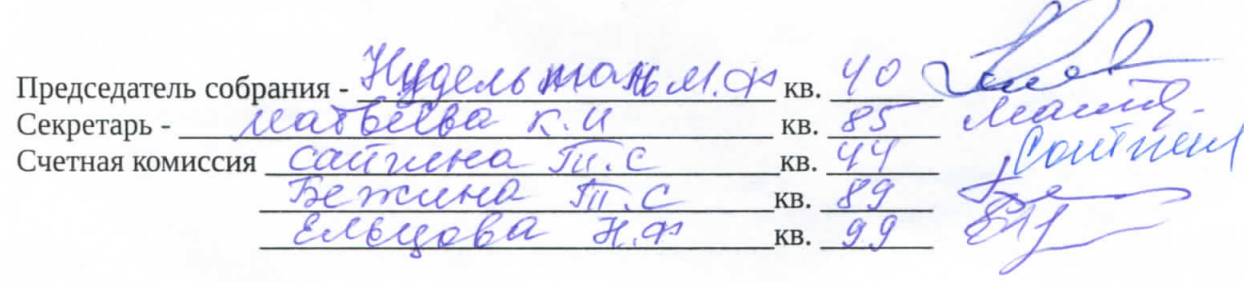 Председатель собрания - Нудельман М.Ф кв. 40
Секретарь - Матвеева К.И кв. 85 Матв.
Счетная комиссия Сайгина Т.С кв. 44
Бежина Т.С кв. 89
Ельцова Н.Ф кв. 99